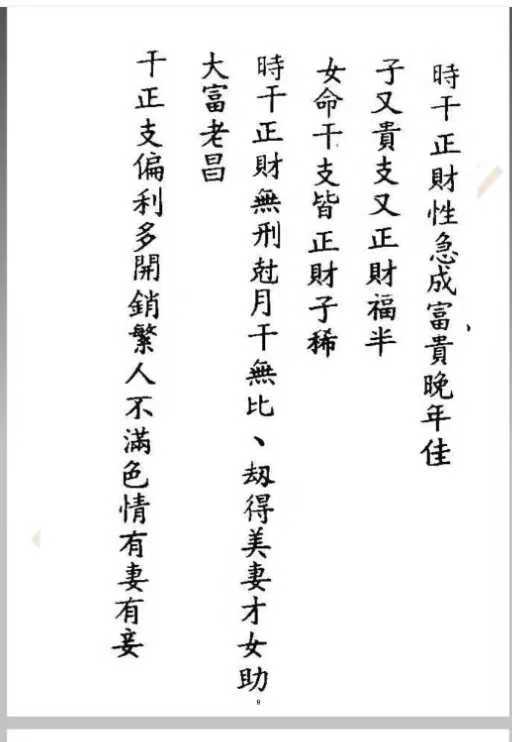 時干正財性急成富貴晚年佳
子又貴支又正財福半
女命干支皆正財子稀
時干正財無刑尅月干無比、刼得美妻才女助
大富老昌
干正支偏利多開銷繁人不滿色情有妻有妾
9